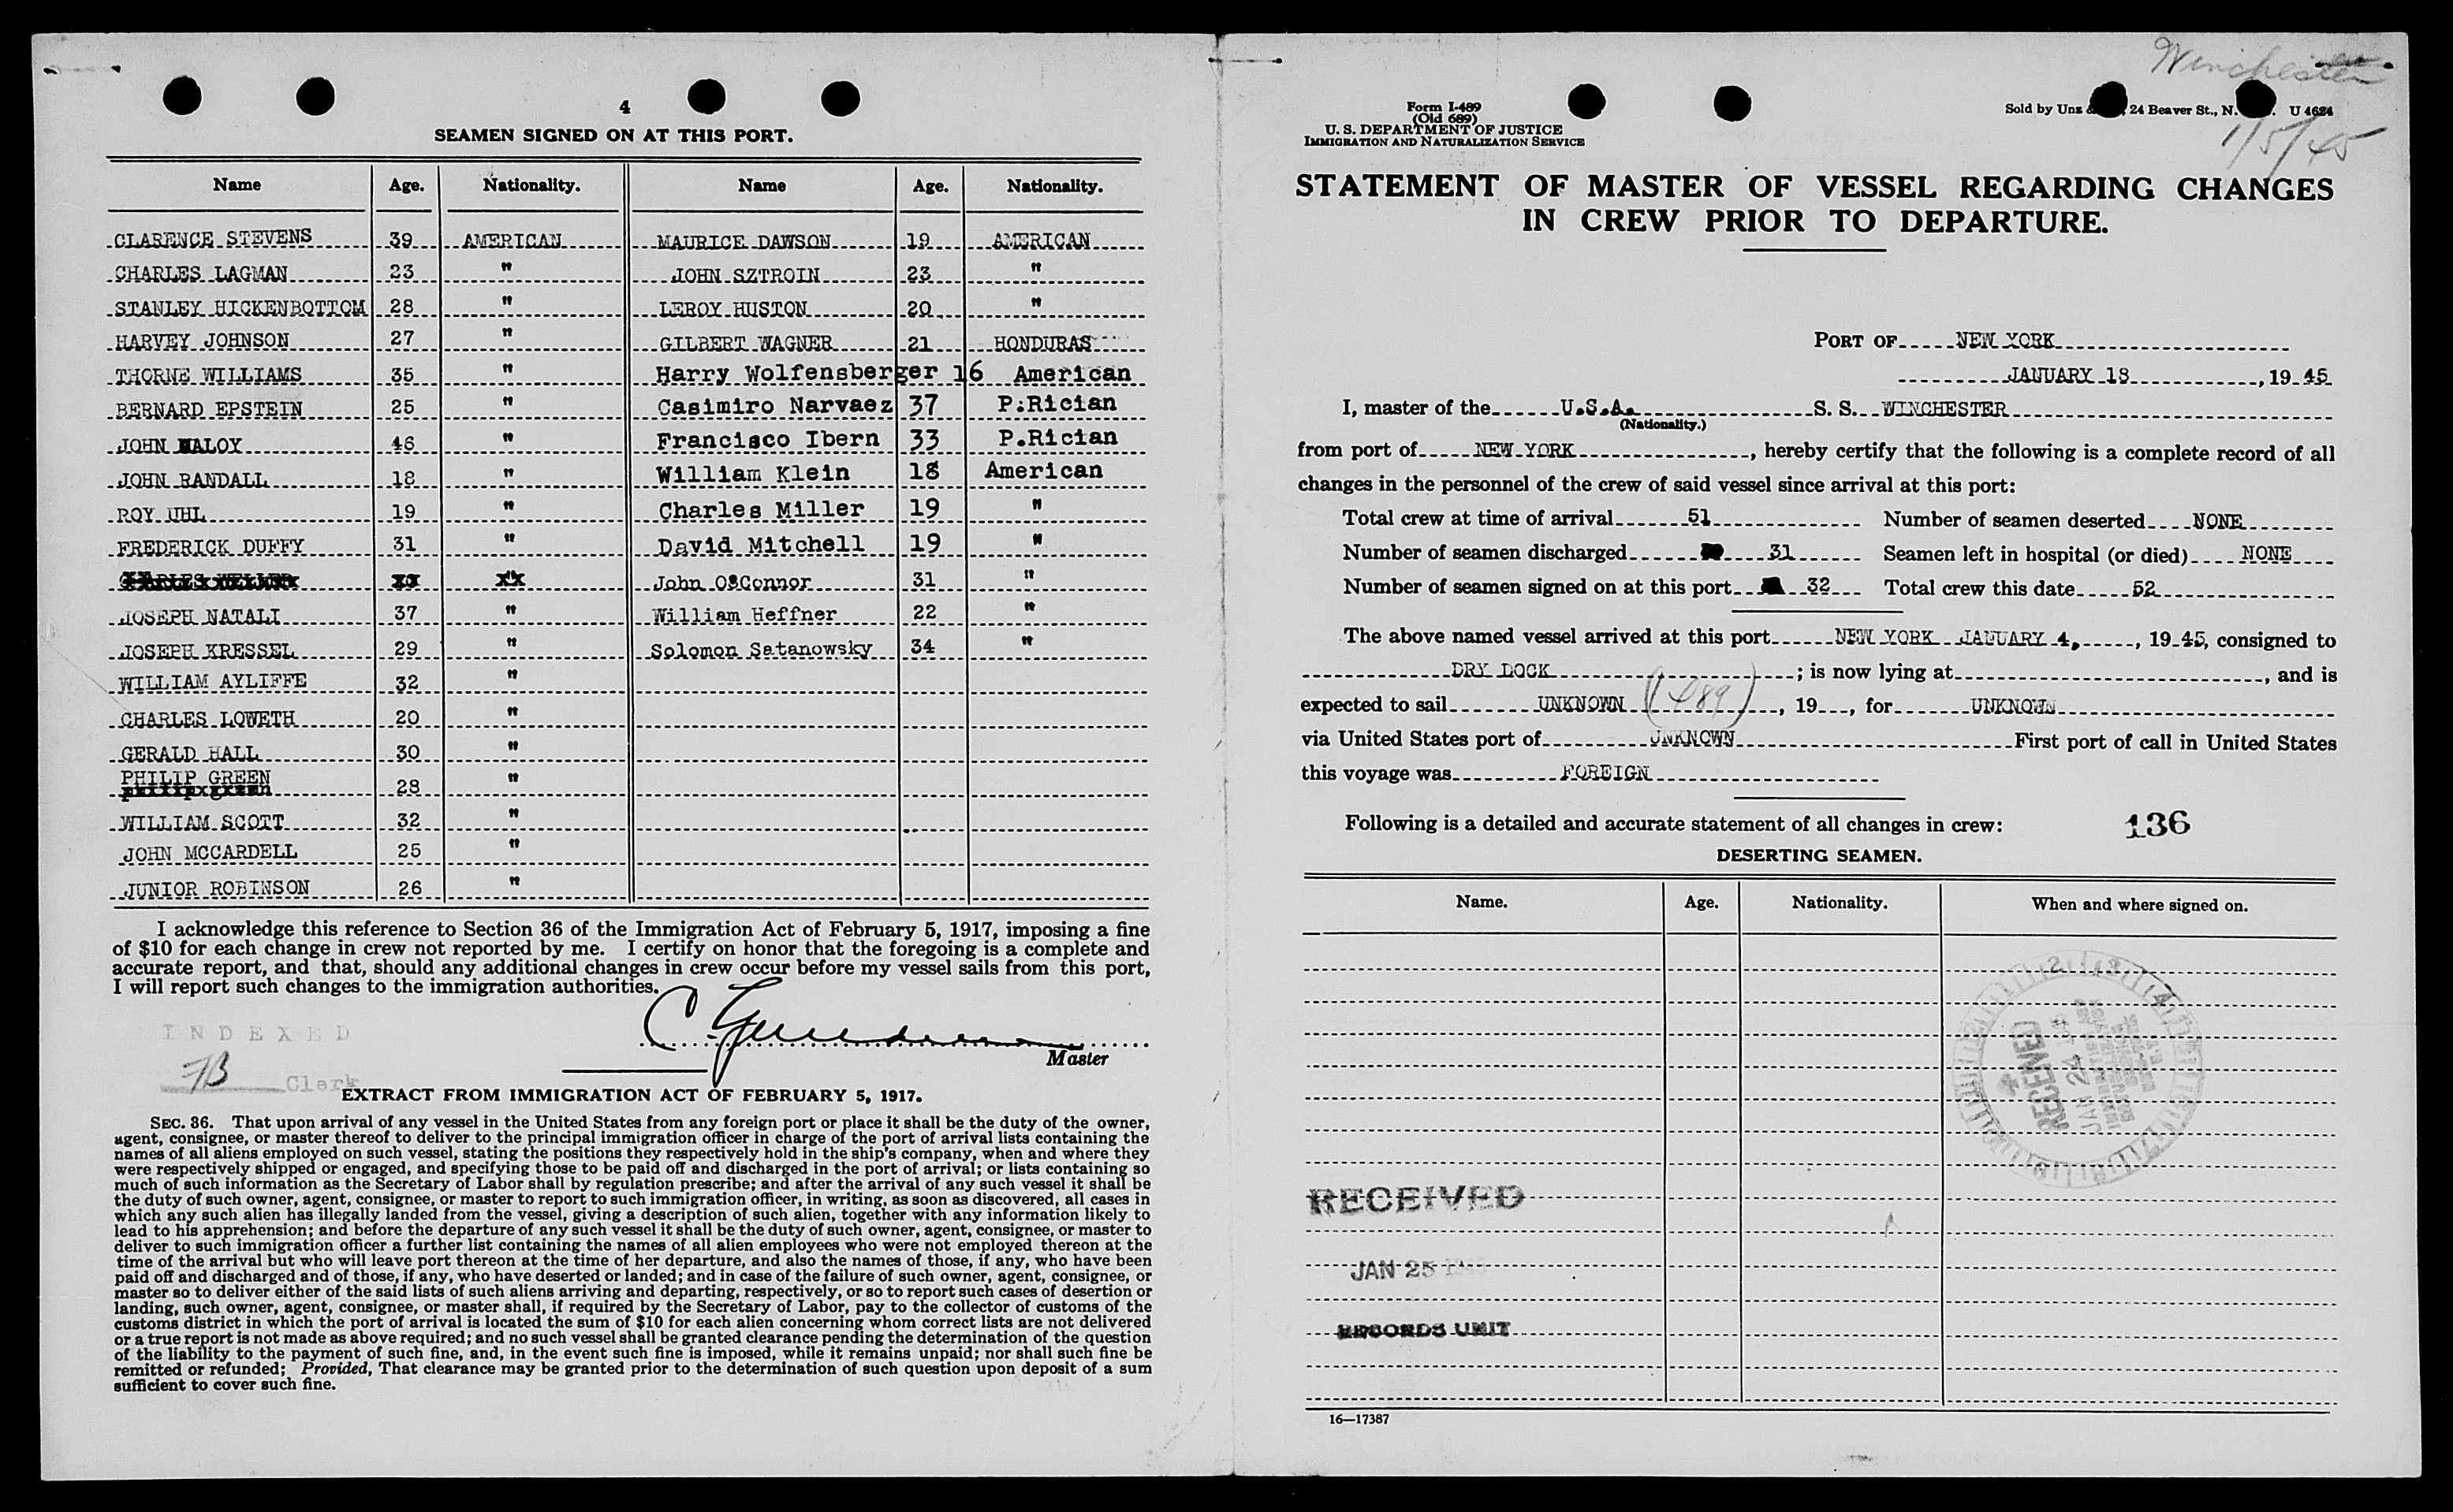 4
SEAMEN SIGNED ON AT THIS PORT.
Name Age. Nationality. Name Age. Nationality.
CLARENCE STEVENS 39 AMERICAN MAURICE DAWSON 19 AMERICAN
CHARLES LAGMAN 23 " JOHN SZTROIN 23 "
STANLEY HICKENBOTTOM 28 " LEROY HUSTON 20 "
HARVEY JOHNSON 27 " GILBERT WAGNER 21 HONDURAS
THORNE WILLIAMS 35 " Harry Wolfensberger 16 American
BERNARD EPSTEIN 25 " Casimiro Narvaez 37 P.Rician
JOHN MALOY 46 " Francisco Ibern 33 P.Rician
JOHN RANDALL 18 " William Klein 18 American
ROY UHL 19 " Charles Miller 19 "
FREDERICK DUFFY 31 " David Mitchell 19 "
xx John O'Connor 31 "
JOSEPH NATALI 37 " William Heffner 22 "
JOSEPH KRESSEL 29 " Solomon Satanowsky 34 "
WILLIAM AYLIFFE 32 "
CHARLES LOWETH 20 "
GERALD HALL 30 "
PHILIP GREEN 28 "
WILLIAM SCOTT 32 "
JOHN MCCARDELL 25 "
JUNIOR ROBINSON 26 "
I acknowledge this reference to Section 36 of the Immigration Act of February 5, 1917, imposing a fine
of $10 for each change in crew not reported by me. I certify on honor that the foregoing is a complete and
accurate report, and that, should any additional changes in crew occur before my vessel sails from this port,
I will report such changes to the immigration authorities.
INDEXED
Master
Clerk
EXTRACT FROM IMMIGRATION ACT OF FEBRUARY 5, 1917.
SEC. 36. That upon arrival of any vessel in the United States from any foreign port or place it shall be the duty of the owner,
agent, consignee, or master thereof to deliver to the principal immigration officer in charge of the port of arrival lists containing the
names of all aliens employed on such vessel, stating the positions they respectively hold in the ship's company, when and where they
were respectively shipped or engaged, and specifying those to be paid off and discharged in the port of arrival; or lists containing so
much of such information as the Secretary of Labor shall by regulation prescribe; and after the arrival of any such vessel it shall be
the duty of such owner, agent, consignee, or master to report to such immigration officer, in writing, as soon as discovered, all cases in
which any such alien has illegally landed from the vessel, giving a description of such alien, together with any information likely to
lead to his apprehension; and before the departure of any such vessel it shall be the duty of such owner, agent, consignee, or master to
deliver to such immigration officer a further list containing the names of all alien employees who were not employed thereon at the
time of the arrival but who will leave port thereon at the time of her departure, and also the names of those, if any, who have been
paid off and discharged and of those, if any, who have deserted or landed; and in case of the failure of such owner, agent, consignee, or
master so to deliver either of the said lists of such aliens arriving and departing, respectively, or so to report such cases of desertion or
landing, such owner, agent, consignee, or master shall, if required by the Secretary of Labor, pay to the collector of customs of the
customs district in which the port of arrival is located the sum of $10 for each alien concerning whom correct lists are not delivered
or a true report is not made as above required; and no such vessel shall be granted clearance pending the determination of the question
of the liability to the payment of such fine, and, in the event such fine is imposed, while it remains unpaid; nor shall such fine be
remitted or refunded; Provided, That clearance may be granted prior to the determination of such question upon deposit of a sum
sufficient to cover such fine.
Winchester
Form I-489
(Old 689)
U. S. DEPARTMENT OF JUSTICE
IMMIGRATION AND NATURALIZATION SERVICE
Sold by Unz 24 Beaver St., N. U 4624
1/5/45
STATEMENT OF MASTER OF VESSEL REGARDING CHANGES
IN CREW PRIOR TO DEPARTURE.
PORT OF NEW YORK
JANUARY 18, 1945
I, master of the U.S.A. S. S. WINCHESTER
(Nationality.)
from port of NEW YORK, hereby certify that the following is a complete record of all
changes in the personnel of the crew of said vessel since arrival at this port:
Total crew at time of arrival 51 Number of seamen deserted NONE
Number of seamen discharged 31 Seamen left in hospital (or died) NONE
Number of seamen signed on at this port 32 Total crew this date 52
The above named vessel arrived at this port NEW YORK JANUARY 4, 1945, consigned to
DRY DOCK; is now lying at, and is
expected to sail UNKNOWN (489), 19, for UNKNOWN
via United States port of UNKNOWN First port of call in United States
this voyage was FOREIGN
Following is a detailed and accurate statement of all changes in crew: 136
DESERTING SEAMEN.
Name. Age. Nationality. When and where signed on.
RECEIVED
JAN 24
RECEIVED
JAN 25
RECORDS UNIT
16—17387